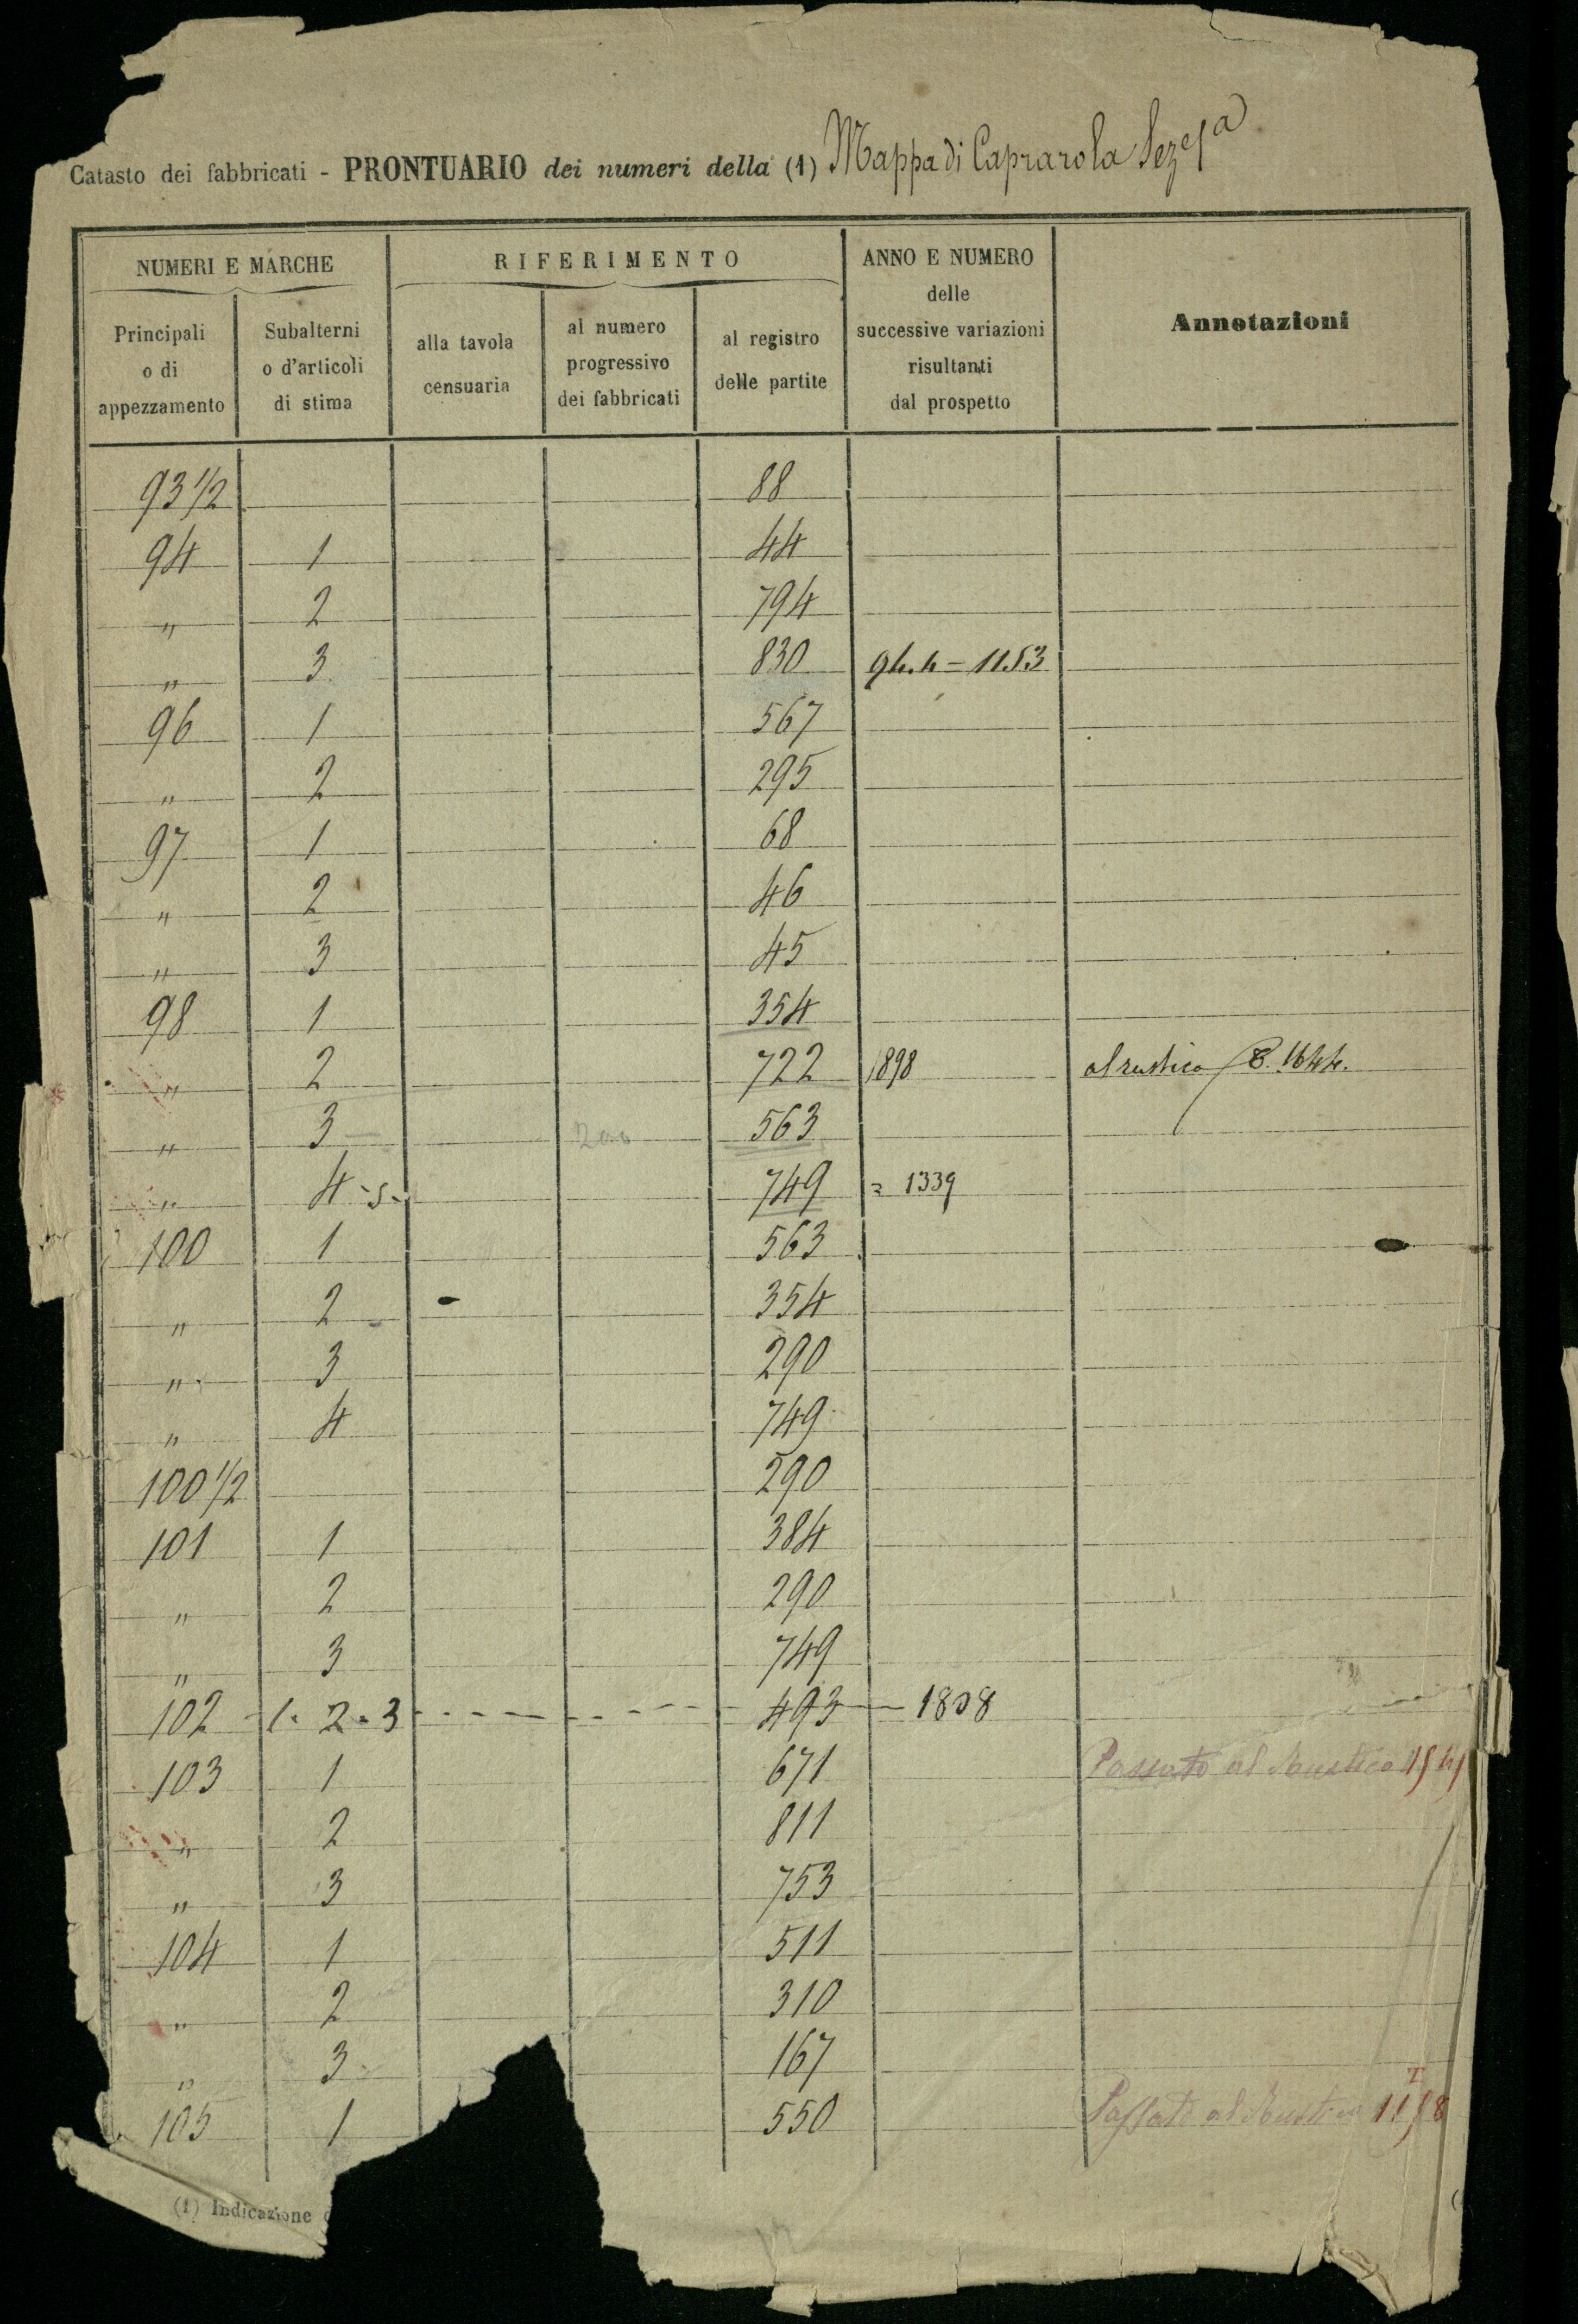 Catasto dei fabbricati - PRONTUARIO dei numeri della (1) Mappa di Caprarola Sez.e 1a
NUMERI E MARCHE
RIFERIMENTO
ANNO E NUMERO
delle
successive variazioni
risultanti
dal prospetto
Annotazioni
Principali
o di
appezzamento
Subalterni
o d'articoli
di stima
alla tavola
censuaria
al numero
progressivo
dei fabbricati
al registro
delle partite
93 1/2 88
94 1 44
" 2 794
" 3 830 94.4 = 1153
96 1 567
" 2 295
97 1 68
" 2 46
" 3 45
98 1 354
" 2 722 1898 al rustico 1644.
" 3 200 563
" 4 - 5 - 749 = 1339
100 1 563
" 2 354
" 3 290
" 4 749
100 1/2 290
101 1 384
" 2 290
" 3 749
102 - 1. 2. 3 - - - - 493 — 1808
103 1 671 Passato al Rustico
" 2 811
" 3 753
104 1 511
" 2 310
" 3 167
105 1 550 Passato al Rustico
(1) Indicazione